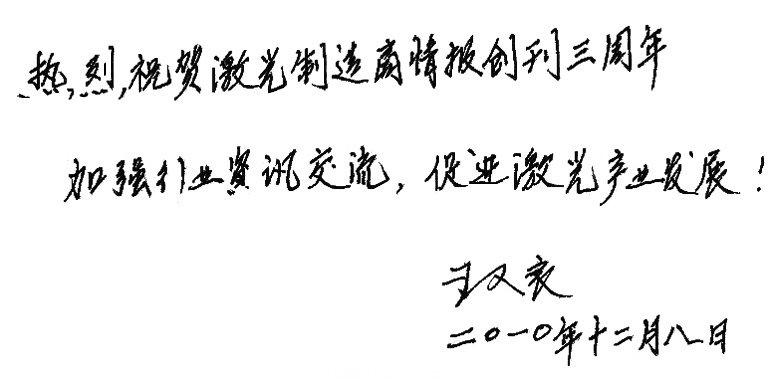 热烈祝贺激光制造商情报创刊三周年
加强行业资讯交流，促进激光产业发展！
王又良
二〇一〇年十二月八日